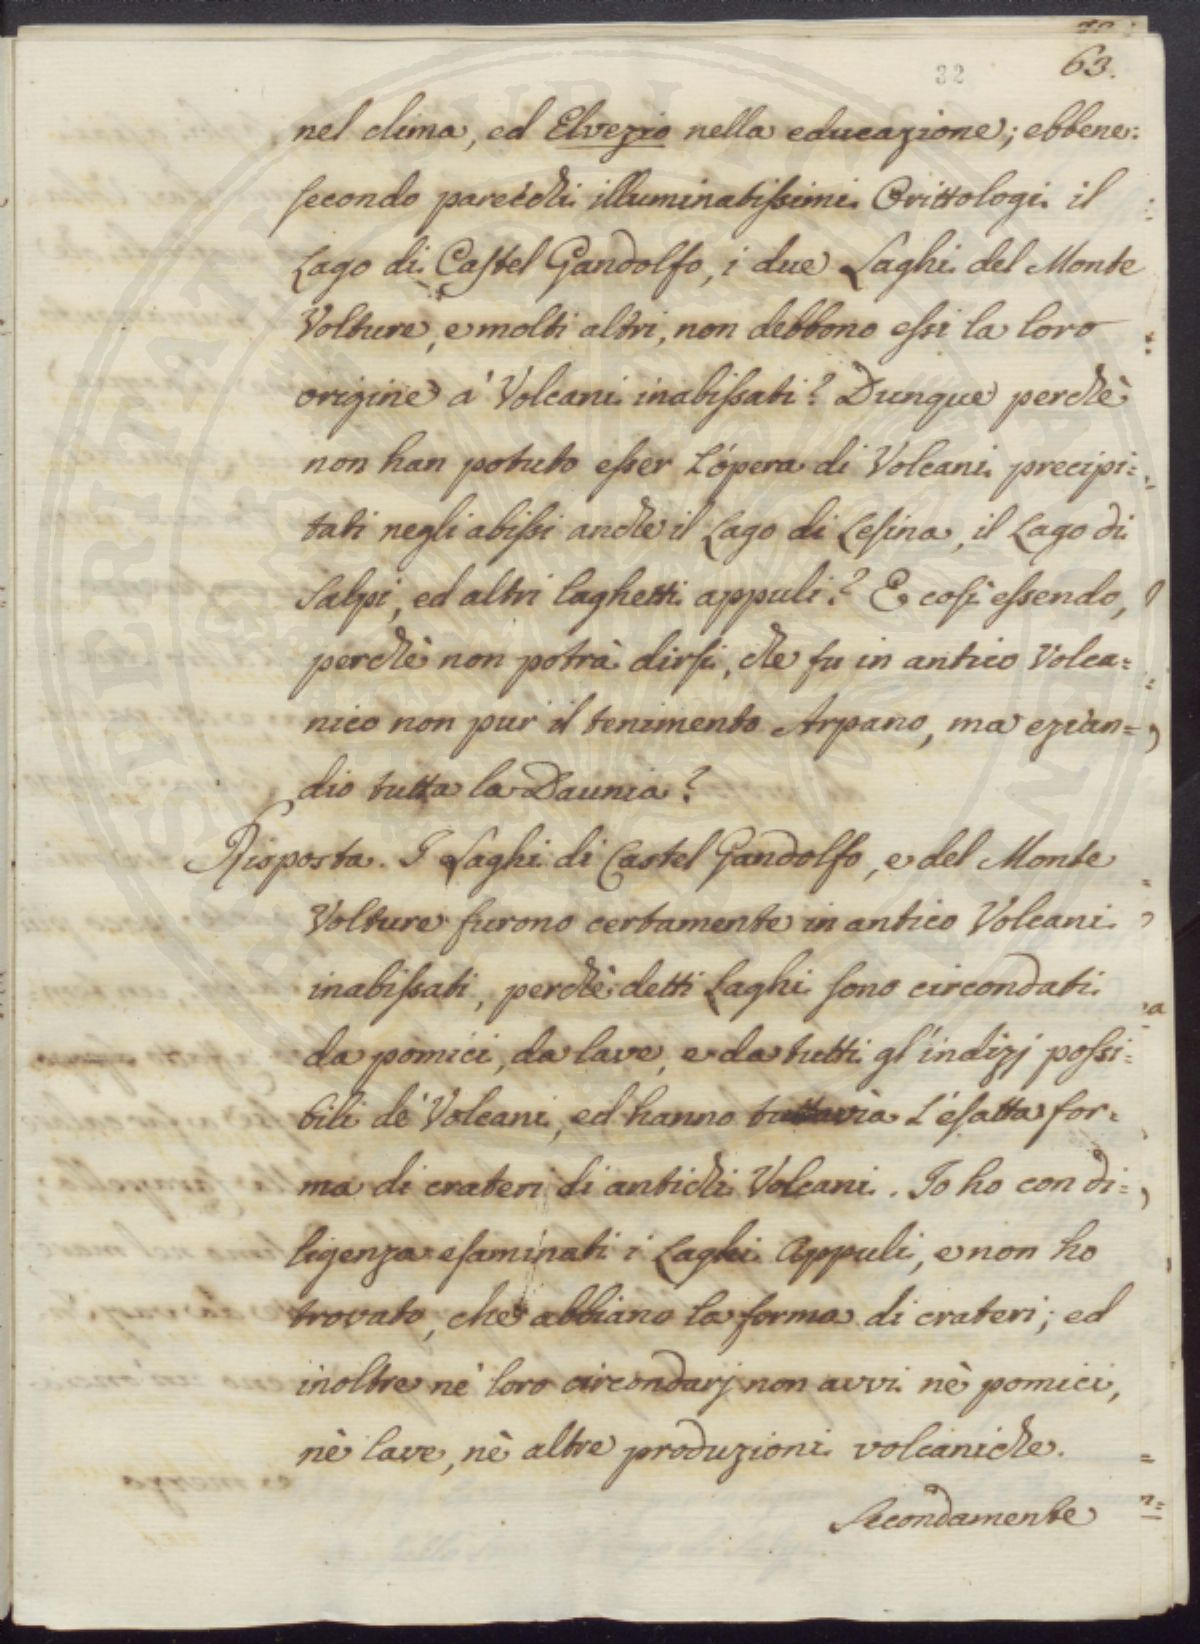 63.
32
nel clima, ed Elvezio nella educazione; ebbene:
secondo parecchi illuminatissimi Orittologi il
Lago di Castel Gandolfo, i due Laghi del Monte
Volture, e molti altri, non debbono essi la loro
origine a' Volcani inabissati? Dunque perchè
non han potuto esser l'opera di Volcani precipi=
tati negli abissi anche il Lago di Lesina, il Lago di
Salpi, ed altri laghetti appuli? E così essendo,
perchè non potrà dirsi, che fu in antico Volca=
nico non pur il tenimento Arpano, ma ezian=
dio tutta la Daunia?
Risposta. I Laghi di Castel Gandolfo, e del Monte
Volture furono certamente in antico Volcani
inabissati, perchè detti Laghi sono circondati
da pomici, da lave, e da tutti gl'indizj possi=
bili de' Volcani, ed hanno tuttavia l'esatta for=
ma di crateri di antichi Volcani. Io ho con di=
ligenza esaminati i Laghi Appuli, e non ho
trovato, che abbiano la forma di crateri; ed
inoltre ne' loro circondarj non avvi nè pomici,
nè lave, nè altre produzioni volcaniche.
Secondamente